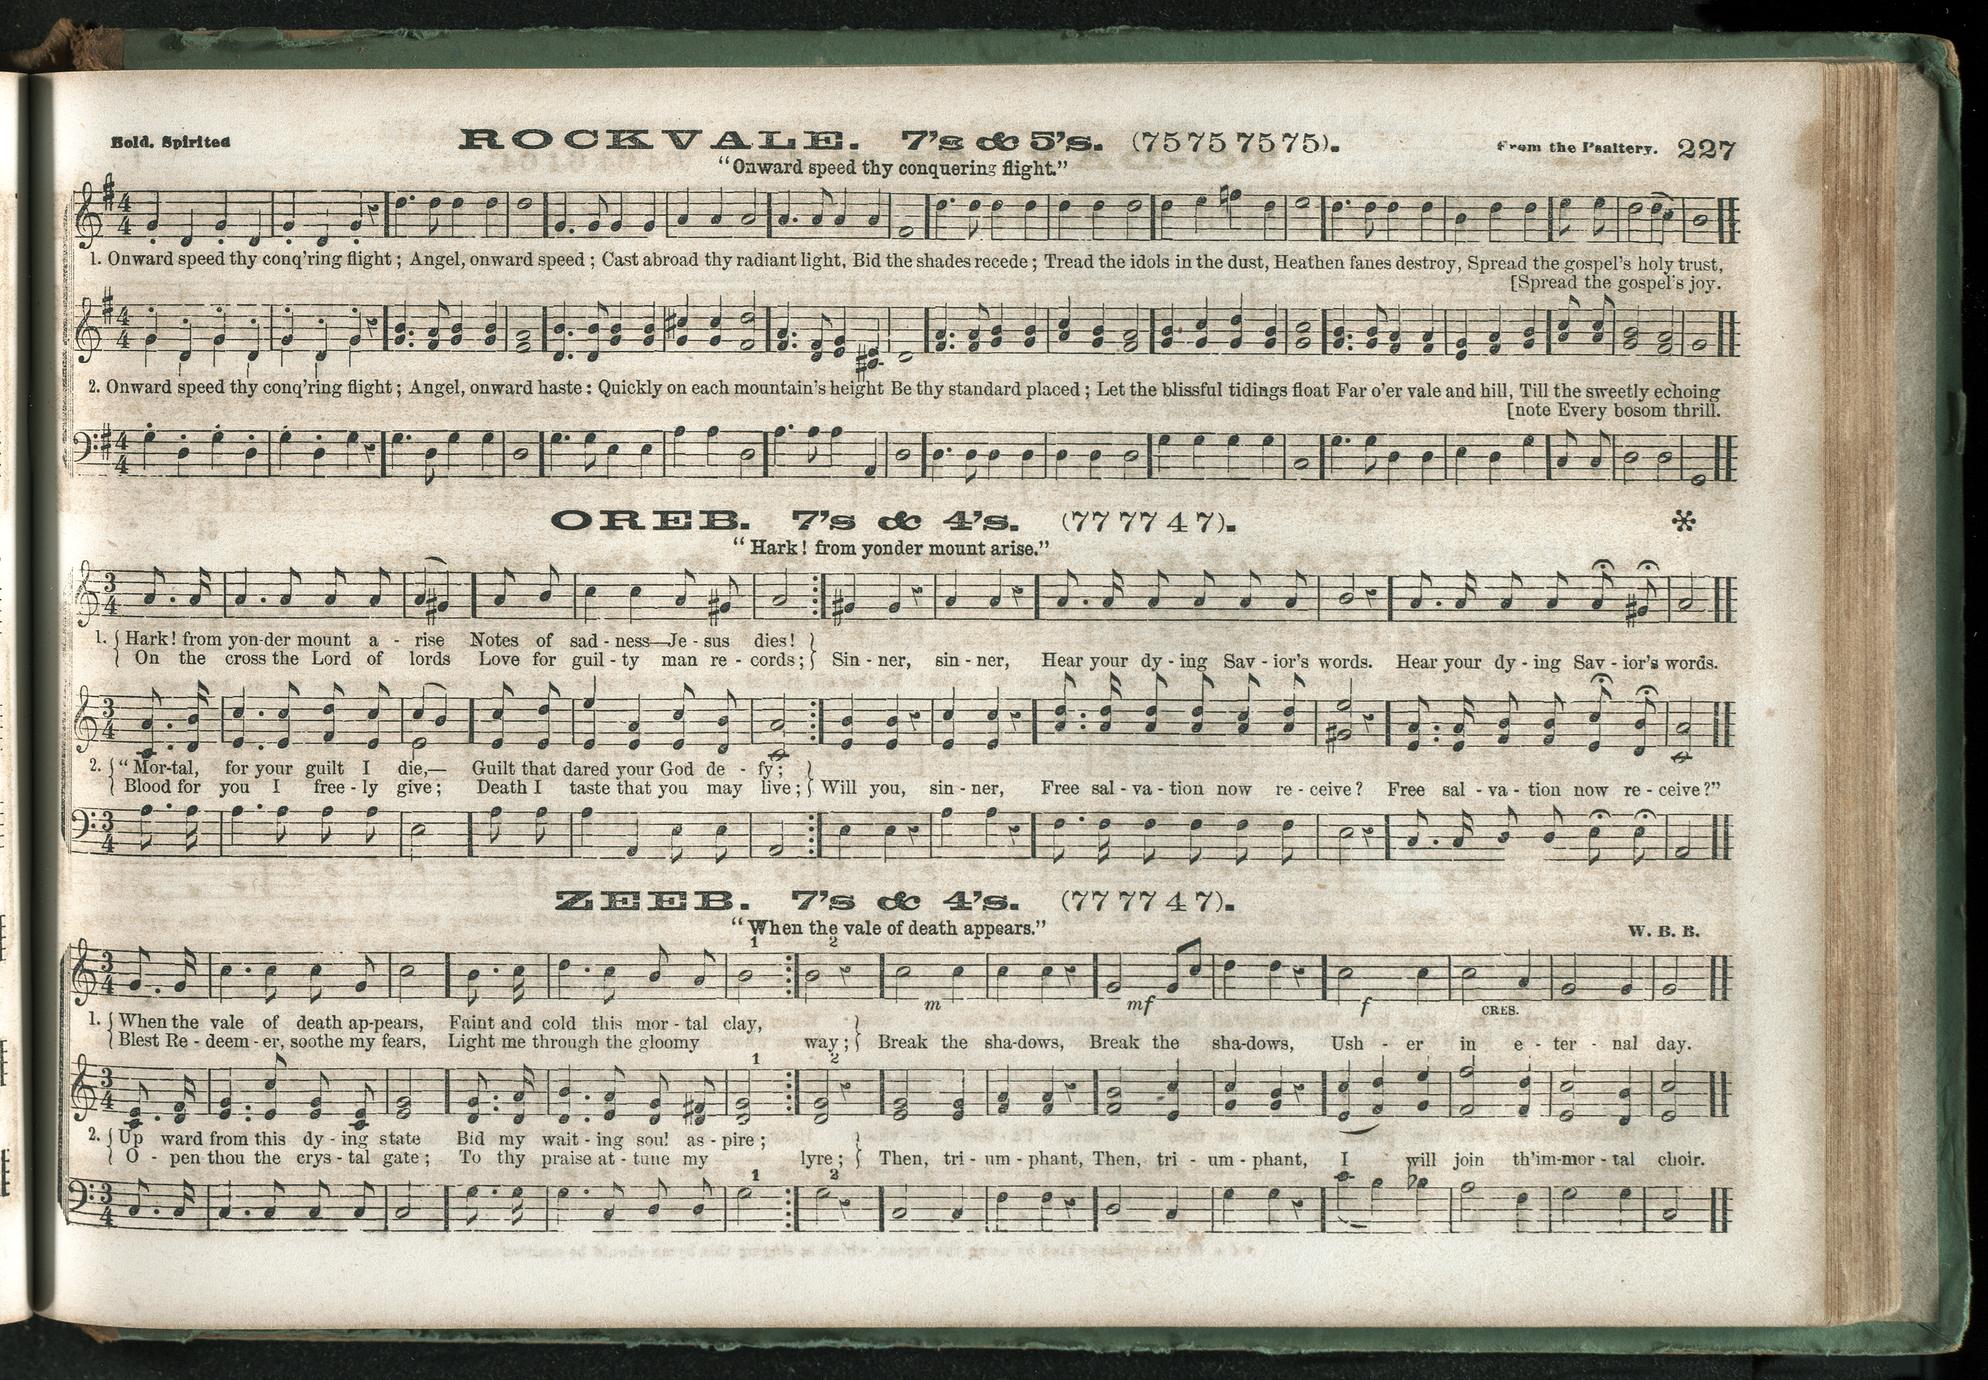 Bold. Spirited
ROCKVALE. 7's & 5's. (75 75 75 75).
From the Psaltery. 227
"Onward speed thy conquering flight."
1. Onward speed thy conq'ring flight; Angel, onward speed; Cast abroad thy radiant light, Bid the shades recede; Tread the idols in the dust, Heathen fanes destroy, Spread the gospel's holy trust,
[Spread the gospel's joy.
2. Onward speed thy conq'ring flight; Angel, onward haste: Quickly on each mountain's height Be thy standard placed; Let the blissful tidings float Far o'er vale and hill, Till the sweetly echoing
[note Every bosom thrill.
OREB. 7's & 4's. (77 77 4 7).
*
"Hark! from yonder mount arise."
1. { Hark! from yon-der mount a - rise Notes of sad - ness—Je - sus dies! }
{ On the cross the Lord of lords Love for guil - ty man re - cords; } Sin - ner, sin - ner, Hear your dy - ing Sav - ior's words. Hear your dy - ing Sav - ior's words.
2. { "Mor-tal, for your guilt I die,— Guilt that dared your God de - fy; }
{ Blood for you I free - ly give; Death I taste that you may live; } Will you, sin - ner, Free sal - va - tion now re - ceive? Free sal - va - tion now re - ceive?"
ZEEB. 7's & 4's. (77 77 4 7).
"When the vale of death appears."
W. B. B.
1 2
m mf f CRES.
1. { When the vale of death ap-pears, Faint and cold this mor - tal clay,
{ Blest Re - deem - er, soothe my fears, Light me through the gloomy way; } Break the sha-dows, Break the sha-dows, Ush - er in e - ter - nal day.
1 2
2. { Up ward from this dy - ing state Bid my wait - ing soul as - pire; }
{ O - pen thou the crys - tal gate; To thy praise at - tune my lyre; } Then, tri - um - phant, Then, tri - um - phant, I will join th'im-mor - tal choir.
1 2